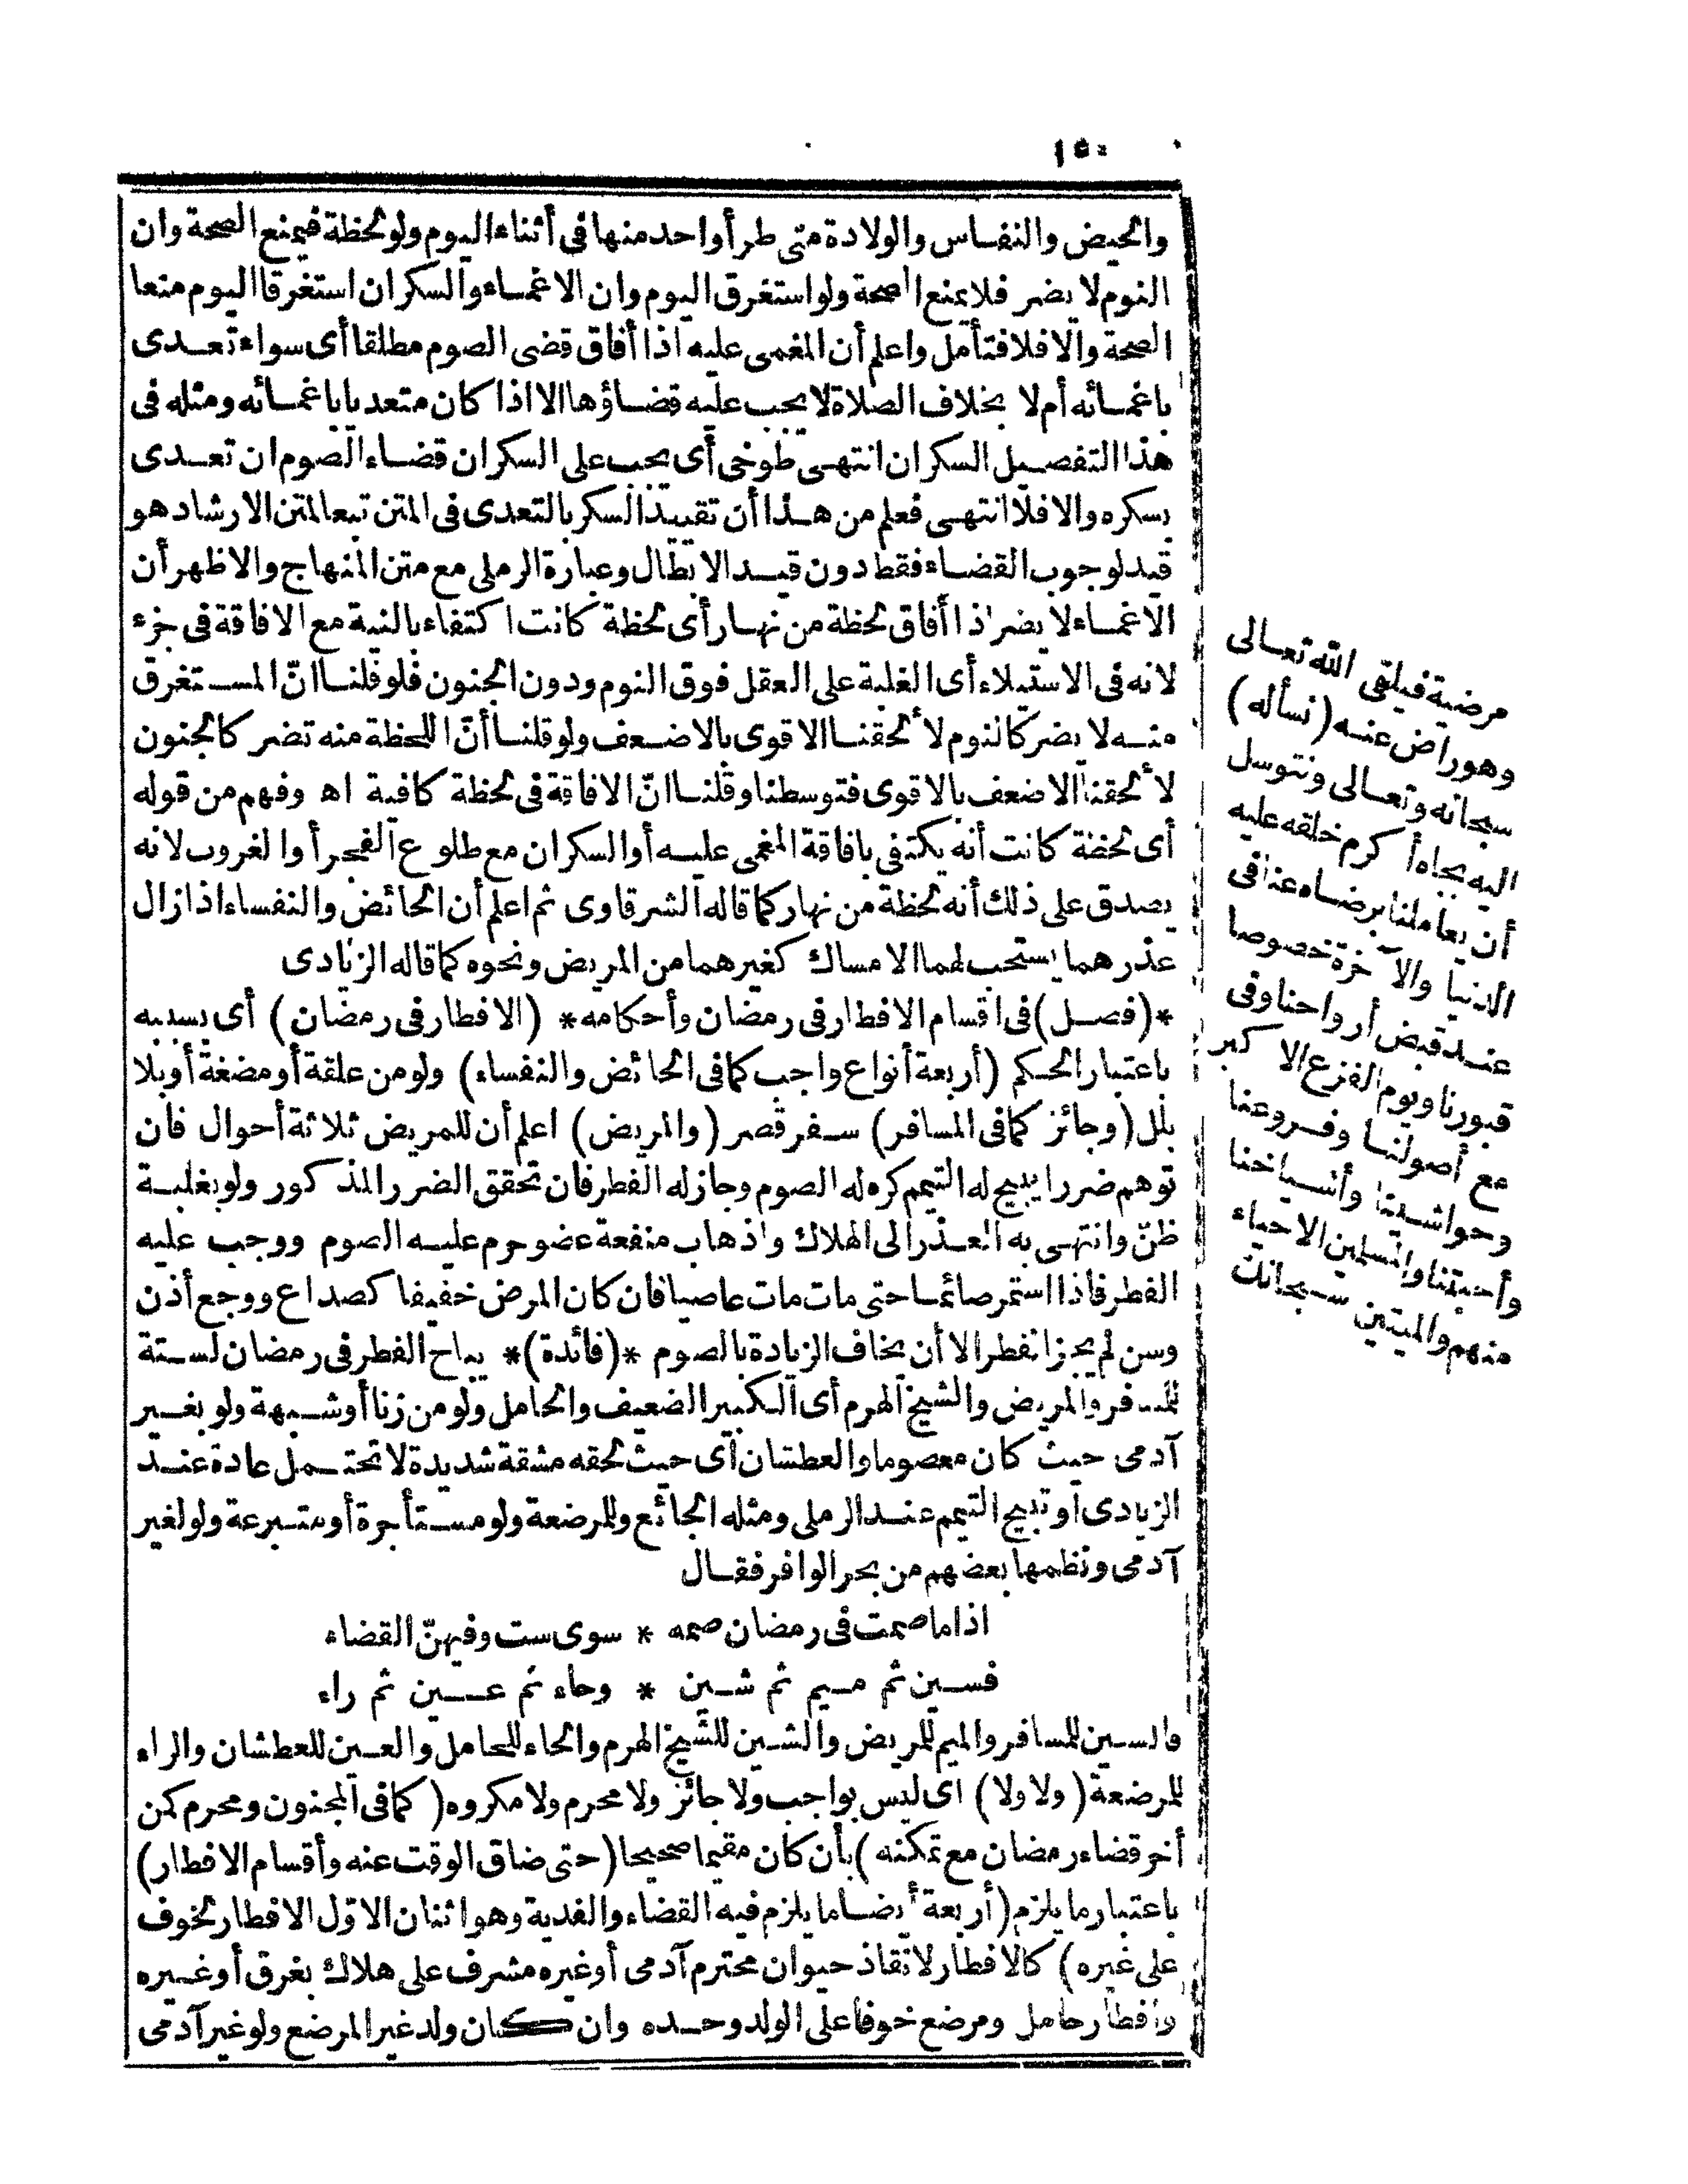 ١٥٠
والحيض والنفاس والولادة متى طرأ واحد منها فى أثناء اليوم ولو لحظة فيمنع الصحة وان
النوم لا يضر فلا يمنع الصحة ولو استغرق اليوم وان الاغمـاء والسكران استغرقا اليوم منعا
الصحة والا فلا فتأمل واعلم أن المغمى عليه اذا أفاق قضى الصوم مطلقا أى سواء تعـدى
باغمـائه أم لا بخلاف الصلاة لا يجب عليه قضـاؤها الا اذا كان متعديا باغمـائه ومثله فى
هذا التفصيل السكران انتهـى طوخى أى يجب على السكران قضـاء الصوم ان تعـدى
بسكره والا فلا انتهـى فعلم من هـذا أن تقييد السكر بالتعدى فى المتن تبعا لمتن الارشاد هو
قيد لوجوب القضـاء فقط دون قيـد الابطال وعبارة الرملى مع متن المنهاج والاظهر أن
الاغمـاء لا يضر اذا أفاق لحظة من نهـار أى لحظة كانت اكتفاء بالنية مع الافاقة فى جزء
لانه فى الاستيلاء أى الغلبة على العقل فوق النوم ودون الجنون فلو قلنـا انّ المسـتغرق
منـه لا يضر كالنوم لأ لحقنـا الاقوى بالاضـعف ولو قلنـا أنّ اللحظة منه تضر كالجنون
لأ لحقنا الاضعف بالاقوى فتوسطنا وقلنـا انّ الافاقة فى لحظة كافية اه وفهم من قوله
أى لحظة كانت أنه يكتفى بافاقة المغمى عليـه أو السكران مع طلوع الفجر أو الغروب لانه
يصدق على ذلك أنه لحظة من نهار كما قاله الشرقاوى ثم اعلم أن الحائض والنفساء اذا زال
عذرهما يستحب لهما الامساك كغيرهما من المريض ونحوه كما قاله الزيادى
*(فصـل) فى اقسام الافطار فى رمضان وأحكامه* (الافطار فى رمضان) أى بسببه
باعتبار الحكم (أربعة أنواع واجب كما فى الحائض والنفساء) ولو من علقة أو مضغة أو بلا
بلل (وجائز كما فى المسافر) سـفر قصر (والمريض) اعلم أن للمريض ثلاثة أحوال فان
توهم ضررا يبيح له التيمم كره له الصوم وجاز له الفطر فان تحقق الضرر المذكور ولو بغلبـة
ظنّ وانتهـى به العـذر الى الهلاك واذهاب منفعة عضو حرم عليـه الصوم ووجب عليه
الفطر فاذا استمر صائمـا حتى مات مات عاصيا فان كان المرض خفيفا كصداع ووجع أذن
وسن لم يجز الفطر الا أن يخاف الزيادة بالصوم *(فائدة)* يباح الفطر فى رمضان لسـتة
للمسافر والمريض والشيخ الهرم أى الكبير الضعيف والحامل ولو من زنا أو شـبهة ولو بغـير
آدمى حيث كان معصوما والعطشان أى حيث لحقه مشقة شديدة لا تحتـمل عادة عنـد
الزيادى أو تبيح التيمم عنـد الرملى ومثله الجائع وللمرضعة ولو مسـتأجرة أو متبـرعة ولو لغير
آدمى ونظمها بعضهم من بحر الوافر فقـال
اذا ما صمت فى رمضان صمه * سوى ست وفيهنّ القضاء
فسـين ثم مـيم ثم شـين * وحاء ثم عـين ثم راء
فالسـين للمسافر والميم للمريض والشـين للشيخ الهرم والحاء للحامل والعـين للعطشان والراء
للمرضعة (ولا ولا) أى ليس بواجب ولا جائز ولا محرم ولا مكروه (كما فى المجنون ومحرم كمن
أخر قضاء رمضان مع تمكنه) بأن كان مقيما صحيحا (حتى ضاق الوقت عنه وأقسام الافطار)
باعتبار ما يلزم (أربعة أيضـا ما يلزم فيه القضاء والفدية وهو اثنان الاوّل الافطار لخوف
على غيره) كالافطار لانقاذ حيوان محترم آدمى أو غيره مشرف على هلاك بغرق أو غـيره
وافطار حامل ومرضع خوفا على الولد وحـده وان كـان ولد غير المرضع ولو غير آدمى
مرضية فيلقى الله تعـالى
وهو راض عنـه (نسأله)
سبحانه وتعـالى ونتوسل
اليه بجاه أكرم خلقه عليه
أن يعاملنا برضـاه عنا فى
الدنيا والآخرة خصوصا
عنـد قبض أرواحنا وفى
قبورنا ويوم الفزع الاكبر
مع أصولنـا وفـروعنا
وحواشـينا وأشـياخنا
وأحبتنا والمسلمين الاحياء
منهم والميتين سـبحانك